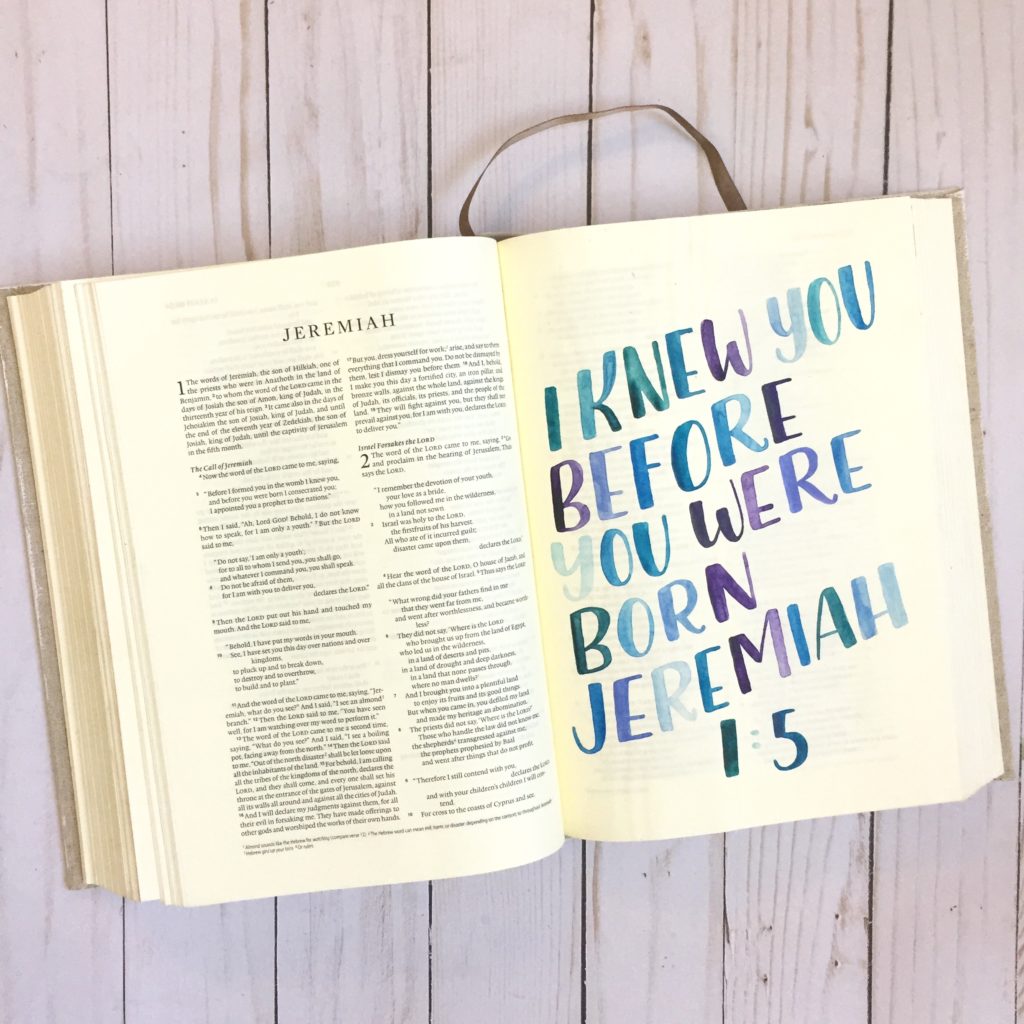 JEREMIAH
1 The words of Jeremiah, the son of Hilkiah, one of
the priests who were in Anathoth in the land of
Benjamin, ² to whom the word of the LORD came in the
days of Josiah the son of Amon, king of Judah, in the
thirteenth year of his reign. ³ It came also in the days of
Jehoiakim the son of Josiah, king of Judah, and until
the end of the eleventh year of Zedekiah, the son of
Josiah, king of Judah, until the captivity of Jerusalem
in the fifth month.
The Call of Jeremiah
⁴ Now the word of the LORD came to me, saying,
⁵ “Before I formed you in the womb I knew you,
and before you were born I consecrated you;
I appointed you a prophet to the nations.”
⁶ Then I said, “Ah, Lord GOD! Behold, I do not know
how to speak, for I am only a youth.” ⁷ But the LORD
said to me,
“Do not say, ‘I am only a youth’;
for to all to whom I send you, you shall go,
and whatever I command you, you shall speak.
⁸ Do not be afraid of them,
for I am with you to deliver you,
declares the LORD.”
⁹ Then the LORD put out his hand and touched my
mouth. And the LORD said to me,
“Behold, I have put my words in your mouth.
¹⁰ See, I have set you this day over nations and over
kingdoms,
to pluck up and to break down,
to destroy and to overthrow,
to build and to plant.”
¹¹ And the word of the LORD came to me, saying, “Jer-
emiah, what do you see?” And I said, “I see an almond¹
branch.” ¹² Then the LORD said to me, “You have seen
well, for I am watching over my word to perform it.”
¹³ The word of the LORD came to me a second time,
saying, “What do you see?” And I said, “I see a boiling
pot, facing away from the north.” ¹⁴ Then the LORD said
to me, “Out of the north disaster² shall be let loose upon
all the inhabitants of the land. ¹⁵ For behold, I am calling
all the tribes of the kingdoms of the north, declares the
LORD, and they shall come, and every one shall set his
throne at the entrance of the gates of Jerusalem, against
all its walls all around and against all the cities of Judah.
¹⁶ And I will declare my judgments against them, for all
their evil in forsaking me. They have made offerings to
other gods and worshiped the works of their own hands.
¹⁷ But you, dress yourself for work;³ arise, and say to them
everything that I command you. Do not be dismayed by
them, lest I dismay you before them. ¹⁸ And I, behold,
I make you this day a fortified city, an iron pillar, and
bronze walls, against the whole land, against the kings
of Judah, its officials, its priests, and the people of the
land. ¹⁹ They will fight against you, but they shall not
prevail against you, for I am with you, declares the LORD,
to deliver you.”
Israel Forsakes the LORD
2 The word of the LORD came to me, saying, ² “Go
and proclaim in the hearing of Jerusalem, Thus
says the LORD,
“I remember the devotion of your youth,
your love as a bride,
how you followed me in the wilderness,
in a land not sown.
³ Israel was holy to the LORD,
the firstfruits of his harvest.
All who ate of it incurred guilt;
disaster came upon them,
declares the LORD.”
⁴ Hear the word of the LORD, O house of Jacob, and
all the clans of the house of Israel. ⁵ Thus says the LORD:
“What wrong did your fathers find in me
that they went far from me,
and went after worthlessness, and became worth-
less?
⁶ They did not say, ‘Where is the LORD
who brought us up from the land of Egypt,
who led us in the wilderness,
in a land of deserts and pits,
in a land of drought and deep darkness,
in a land that none passes through,
where no man dwells?’
⁷ And I brought you into a plentiful land
to enjoy its fruits and its good things.
But when you came in, you defiled my land
and made my heritage an abomination.
⁸ The priests did not say, ‘Where is the LORD?’
Those who handle the law did not know me;
the shepherds⁴ transgressed against me;
the prophets prophesied by Baal
and went after things that do not profit.
⁹ “Therefore I still contend with you,
declares the LORD,
and with your children’s children I will con-
tend.
¹⁰ For cross to the coasts of Cyprus and see,
I KNEW YOU
BEFORE
YOU WERE
BORN
JEREMIAH
1:5